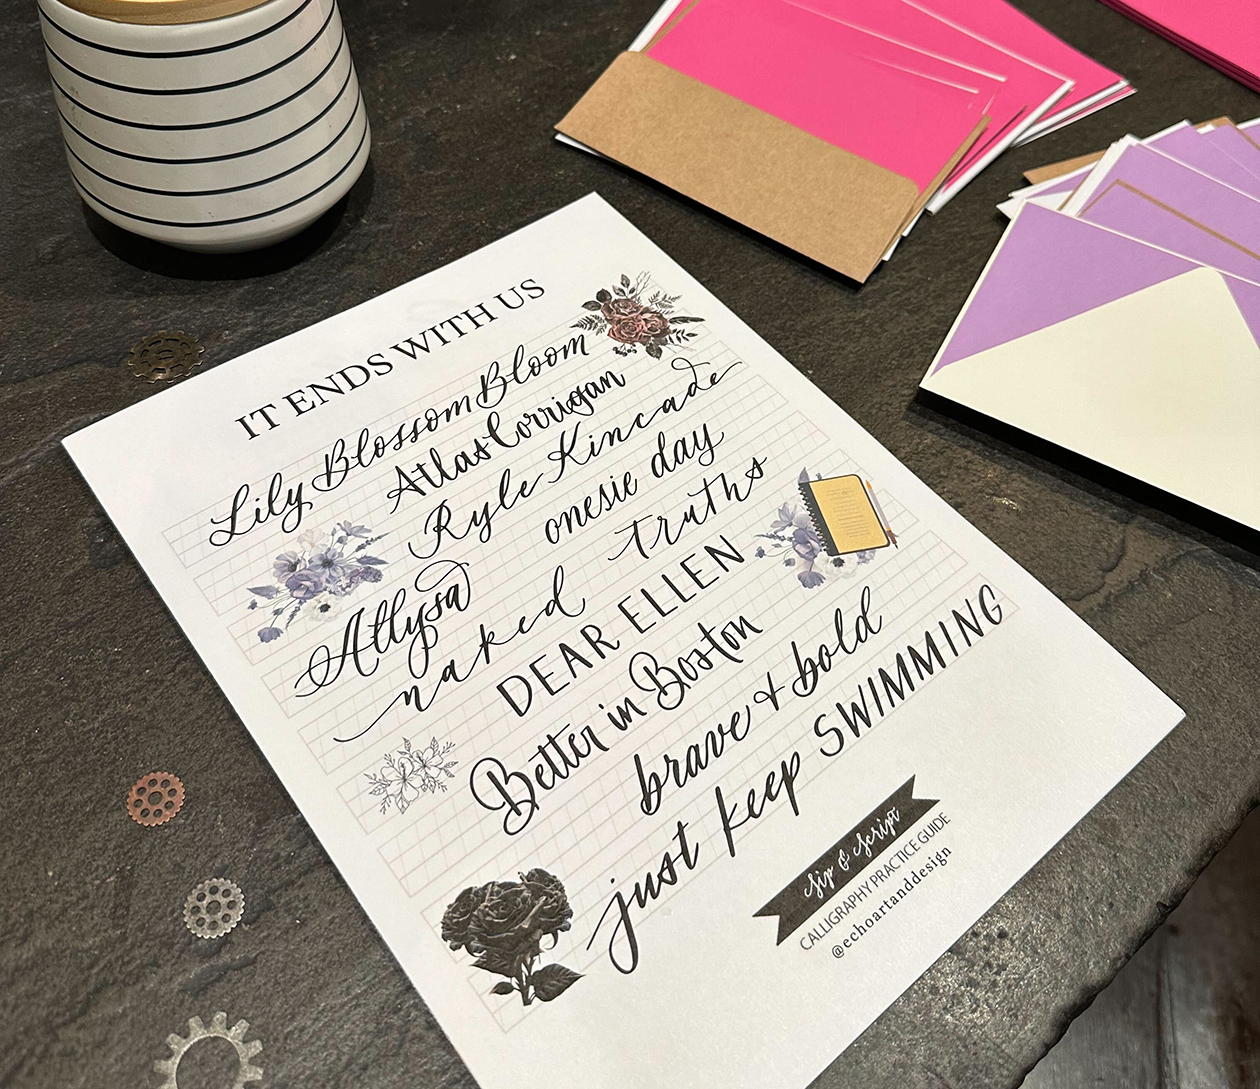 IT ENDS WITH US
Lily Blossom Bloom
Atlas Corrigan
Ryle Kincade
Allysa onesie day
naked truths
DEAR ELLEN
Better in Boston
brave & bold
just keep SWIMMING
Sip & Script
CALLIGRAPHY PRACTICE GUIDE
@echoartanddesign